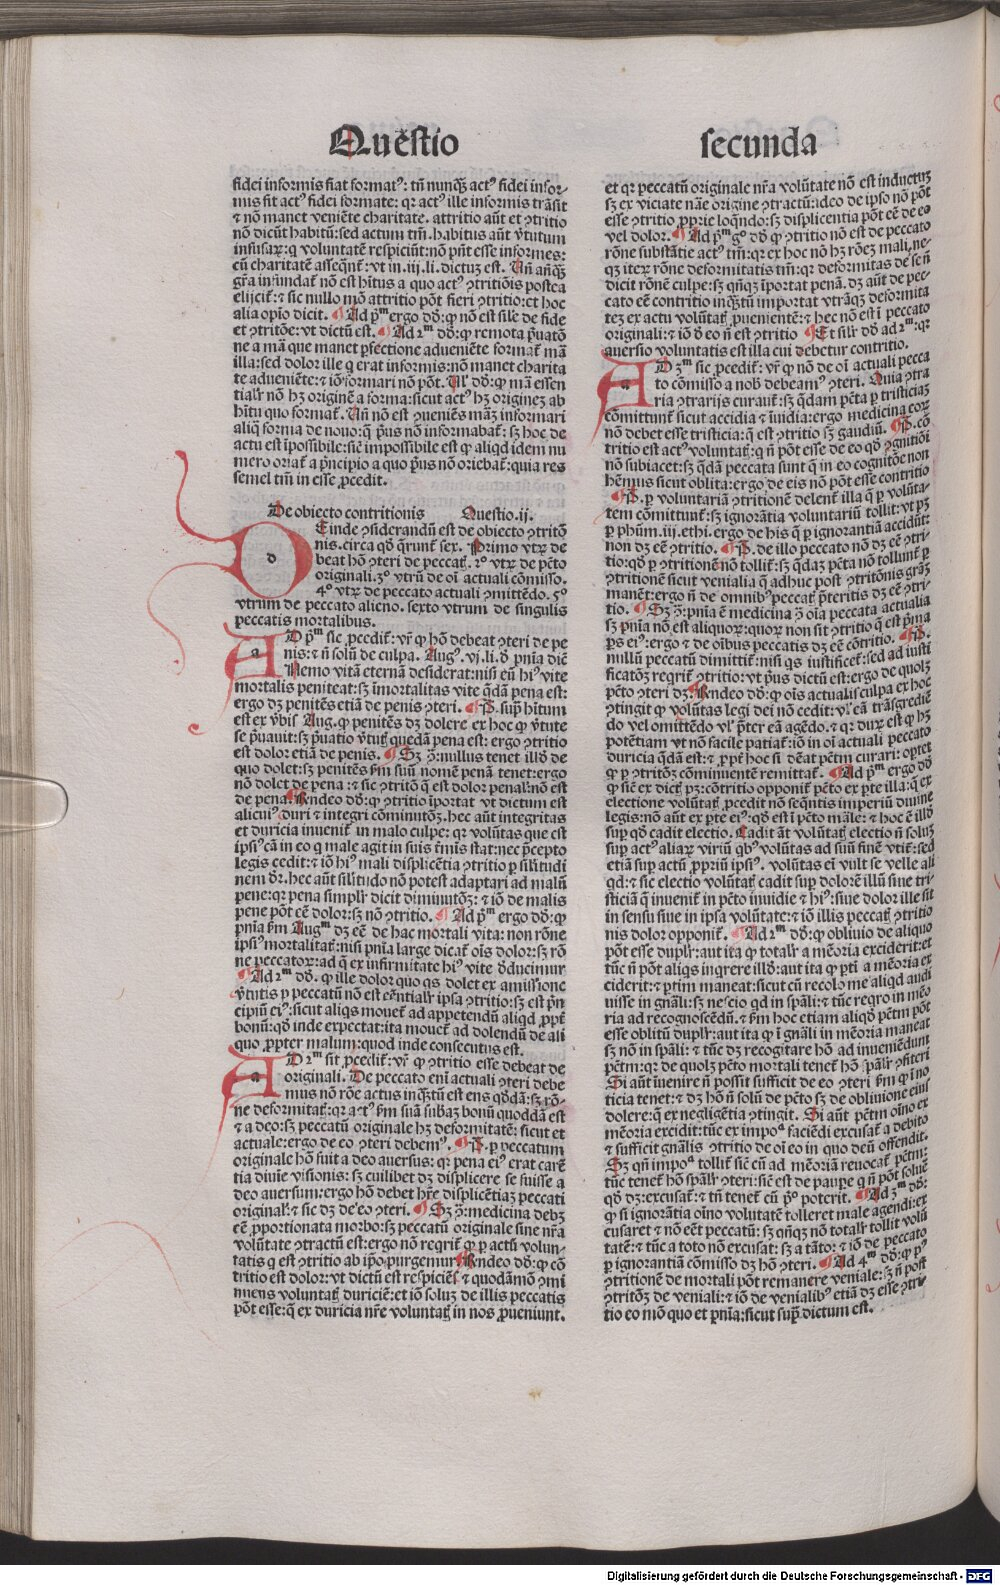 Questio secunda
fidei informis fiat format⁹: tñ nunqȝ act⁹ fidei infor-
mis fit act⁹ fidei formate: qr act⁹ ille informis trāsit
⁊ nō manet veniēte charitate. attritio aūt et ꝯtritio
nō dicūt habitū: sed actum tm̄. habitus aūt ṽtutum
infusaꝝ: q̄ voluntatē respiciūt: nō pn̄t esse informes:
cū charitatē asseqn̄t: vt in .iij. li. dictuȝ est. Un̄ añqȝ
gr̄a infundat̄ nō est hītus a quo act⁹ ꝯtritiōis postea
elijcit̄: ⁊ sic nullo mō attritio pōt fieri ꝯtritio: et hoc
alia opīo dicit. ¶ Ad p̄ᵐ ergo dō: ꝙ nō est sil̄e de fide
et ꝯtritōe: vt dictū est. ¶ Ad 2ᵐ dō: ꝙ remota p̄uatō
ne a mā que manet ꝑfectione adueniēte format̄ mā
illa: sed dolor ille q̄ erat informis: nō manet charita
te adueniēte: ⁊ iō formari nō pōt. Ul̓ dō: ꝙ mā essen
tialr̄ nō hȝ originē a forma: sicut act⁹ hȝ origineȝ ab
hītu quo format̄. Un̄ nō est ꝯueniēs māȝ informari
aliq̄ forma de nouo: q̄ p̄us nō informabat̄: sȝ hoc de
actu est īpossibile: sic̄ impossibile est ꝙ aliqd̄ idem nu
mero oriat̄ a p̄ncipio a quo p̄us nō oriebat̄: quia res
semel tm̄ in esse ꝓcedit.
De obiecto contritionis Questio .ij.
Deinde ꝯsiderandū est de obiecto ꝯtritō
nis. circa qd̄ q̄runt̄ sex. Primo vtꝝ de
beat hō ꝯteri de peccat̄. 2⁰ vtꝝ de pctō
originali. 3⁰ vtrū de oī actuali cōmisso.
4⁰ vtꝝ de peccato actuali ꝯmittēdo. 5⁰
vtrum de peccato alieno. sexto vtrum de singulis
peccatis mortalibus.
AD p̄ᵐ sic ꝓcedit̄: vr̄ ꝙ hō debeat ꝯteri de pe
nis: ⁊ n̄ solū de culpa. Aug⁹. vj. li. d̄ pn̄ia dic̄
Nemo vitā eternā desiderat: nisi eū hi⁹ vite
mortalis peniteat: sȝ īmortalitas vite q̄dā pena est:
ergo dȝ penitēs etiā de penis ꝯteri. ¶ P̄. sup̄ hītum
est ex v̄bis Aug. ꝙ penitēs dȝ dolere ex hoc ꝙ ṽtute
se p̄uauit: sȝ p̄uatio ṽtut̄ quedā pena est: ergo ꝯtritio
est dolor etiā de penis. ¶ Sȝ ꝯ̄: nullus tenet illd̄ de
quo dolet: sȝ penitēs fm̄ suū nomē penā tenet: ergo
nō dolet de pena: ⁊ sic ꝯtritō q̄ est dolor penal̓: nō est
de pena. Rn̄deo dō: ꝙ ꝯtritio īportat vt dictum est
alicui⁹ duri ⁊ integri cōminutōȝ. hec aūt integritas
et duricia inuenit̄ in malo culpe: qr voluntas que est
ipsi⁹ cā in eo q̄ male agit in suis t̄mis stat: nec p̄cepto
legis cedit: ⁊ iō hi⁹ mali displicētia ꝯtritio ꝑ silitudi
nem dr̄. hec aūt silitudo nō potest adaptari ad malū
pene: qr pena simplr̄ dicit diminutōȝ: ⁊ iō de malis
pene pōt eē dolor: sȝ nō ꝯtritio. ¶ Ad p̄ᵐ ergo dō: ꝙ
pn̄ia fm̄ Augᵐ dȝ eē de hac mortali vita: non rōne
ipsi⁹ mortalitat̄: nisi pn̄ia large dicat̄ oīs dolor: sȝ rō
ne peccatoꝝ: ad q̄ ex infirmitate hi⁹ vite d̄ducimur
¶ Ad 2ᵐ dō. ꝙ ille dolor quo qs dolet ex amissione
ṽtutis ꝑ peccatū nō est eēntialr̄ ipsa ꝯtritio: sȝ est p̄n
cipiū ei⁹: sicut aliqs mouet̄ ad appetendū aliqd̄ ꝓpt̄
bonū: qd̄ inde expectat: ita mouet̄ ad dolendū de ali
quo ꝓpter malum: quod inde consecutus est.
AD 2ᵐ sic̄ ꝓcedit̄: vr̄ ꝙ ꝯtritio esse debeat de
originali. De peccato enī actuali ꝯteri debe
mus nō rōne actus inqȝtū est ens qd̄dā: sȝ rō-
ne deformitat̄: qr act⁹ fm̄ suā subaȝ bonū quoddā est
⁊ a deo: sȝ peccatū originale hȝ deformitatē: sicut et
actuale: ergo de eo ꝯteri debem⁹. ¶ P̄. ꝑ peccatum
originale hō fuit a deo auersus: qr pena ei⁹ erat carē
tia diuīe visionis: sȝ cuilibet dȝ displicere se fuisse a
deo auersum: ergo hō debet hr̄e displicētiaȝ peccati
original̓: ⁊ sic dȝ de eo ꝯteri. ¶ Sȝ ꝯ̄: medicina debȝ
eē ꝓportionata morbo: sȝ peccatū originale sine nr̄a
volūtate ꝯtractū est: ergo nō reqrit̄ ꝙ ꝑ actū volun-
tatis q̄ est ꝯtritio ab ip̄o purgemur. Rn̄deo dō: ꝙ cō
tritio est dolor: vt dictū est respiciēs ⁊ quodāmō ꝯmi
nuens voluntat̄ duriciē: et iō soluȝ de illis peccatis
pōt esse: q̄ ex duricia nr̄e voluntat̄ in nos ꝓueniunt.
et qr peccatū originale nr̄a volūtate nō est inductuȝ
sȝ ex viciate nāe origine ꝯtractū: ideo de ipso nō pōt
esse ꝯtritio ꝓprie loqn̄do: sȝ displicentia pōt eē de eo
vel dolor. ¶ Ad p̄ᵐ g⁰ dō ꝙ ꝯtritio nō est de peccato
rōne substātie act⁹ tm̄: qr ex hoc nō hȝ rōeȝ mali, ne-
qȝ iteꝝ rōne deformitatis tm̄: qr deformitas de se n̄
dicit rōnē culpe: sȝ qn̄qȝ īportat penā. dȝ aūt de pec-
cato eē contritio inqȝtū importat vtrāqȝ deformita
teȝ ex actu volūtat̄ ꝓuenientē: ⁊ hec nō est ī peccato
originali: ⁊ iō d̄ eo n̄ est ꝯtritio ¶ Et silr̄ dō ad 2ᵐ: qr
auersio voluntatis est illa cui debetur contritio.
AD 3ᵐ sic ꝓcedit̄: vr̄ ꝙ nō de oī actuali pecca
to cōmisso a nob̄ debeam⁹ ꝯteri. Quia ꝯtra
ria ꝯtrarijs curant̄: sȝ q̄dam pctā ꝑ tristiciaȝ
cōmittunt̄ sicut accidia ⁊ īuidia: ergo medicina eoꝝ
nō debet esse tristicia: q̄ est ꝯtritio sȝ gaudiū. ¶ P̄. cō
tritio est act⁹ voluntat̄: q̄ n̄ pōt esse de eo qd̄ ꝯgnitiōi
nō subiacet: sȝ q̄dā peccata sunt q̄ in eo cognitōe non
hēmus sicut oblita: ergo de eis nō pōt esse contritio
¶ P̄. ꝑ voluntariā ꝯtritionē delent̄ illa q̄ ꝑ volūta-
tem cōmittunt̄: sȝ ignorātia voluntariū tollit: vt pȝ
ꝑ phūm. iij. ethi. ergo de his q̄ ꝑ ignorantiā accidūt:
non dȝ eē ꝯtritio. ¶ P̄. de illo peccato nō dȝ eē ꝯtri-
tio: qd̄ ꝑ ꝯtritionē nō tollit̄: sȝ q̄daȝ pctā nō tollunt̄ ꝑ
ꝯtritionē sicut venialia q̄ adhuc post ꝯtritōnis grāȝ
manēt: ergo n̄ de omnib⁹ peccat̄ p̄teritis dȝ eē ꝯtri-
tio. ¶ Sȝ ꝯ̄: pn̄ia ē medicina ꝯ̄ oīa peccata actualia
sȝ pn̄ia nō est aliquoꝝ: quoꝝ non sit ꝯtritio q̄ est p̄ma
ꝑs ei⁹: ergo ⁊ de oībus peccatis dȝ eē cōtritio. ¶ P̄.
nullū peccatū dimittit̄: nisi qs iustificet̄: sed ad iusti
ficatōȝ reqrit̄ ꝯtritio: vt p̄us dictū est: ergo de quolȝ
pctō ꝯteri dȝ. Rn̄deo dō: ꝙ oīs actualis culpa ex hoc
ꝯtingit ꝙ volūtas legi dei nō cedit: vl̓ eā trāsgrediē
do vel omittēdo vl̓ p̄ter eā agēdo. ⁊ qr duꝝ est ꝙ hȝ
potētiam vt nō facile patiat̄: iō in oī actuali peccato
duricia q̄dā est: ⁊ ꝓpt̄ hoc si dēat pctm̄ curari: optet
ꝙ ꝑ ꝯtritōȝ cōminuentē remittat̄. ¶ Ad p̄ᵐ ergo dō
ꝙ sic̄ ex dict̄ pȝ: cōtritio opponit̄ pctō ex ꝑte illa: q̄ ex
electione volūtat̄ ꝓcedit nō seqn̄tis imperiū diuine
legis: nō aūt ex ꝑte ei⁹: qd̄ est ī pctō māle: ⁊ hoc ē illd̄
sup̄ qd̄ cadit electio. Cadit āt volūtat̄ electio n̄ soluȝ
sup̄ act⁹ aliaꝝ viriū qb⁹ volūtas ad suū finē vtit̄: sed
etiā sup̄ actū ꝓpriū ipsi⁹. volūtas eī vult se velle ali
qd: ⁊ sic electio volūtat̄ cadit sup̄ dolorē illū siue tri-
sticiā q̄ inuenit̄ in pctō inuidie ⁊ hi⁹: siue dolor ille sit
in sensu siue in ipsa volūtate: ⁊ iō illis peccat̄ ꝯtritio
nis dolor opponit̄. ¶ Ad 2ᵐ dō: ꝙ obliuio de aliquo
pōt esse duplr̄: aut ita ꝙ totalr̄ a mēoria exciderit: et
tūc n̄ pōt aliqs inqrere illd̄: aut ita ꝙ ꝑtī a mēoria ex
ciderit: ⁊ ꝑtim maneat: sicut cū recolo me aliqd audi
uisse in gn̄ali: sȝ nescio qd in spāli: ⁊ tūc reqro in mēo
ria ad recognoscēdū. ⁊ fm̄ hoc etiam aliqd̄ pctm̄ pōt
esse oblitū duplr̄: aut ita ꝙ ī gn̄ali in mēoria maneat
sȝ nō in spāli: ⁊ tūc dȝ recogitare hō ad inueniēdum
pctm̄: qr de quolȝ pctō mortali tenet̄ hō spālr̄ ꝯfiteri
Si aūt īuenire n̄ possit sufficit de eo ꝯteri fm̄ ꝙ ī no
ticia tenet̄: ⁊ dȝ hō n̄ solū de pctō sȝ de obliuione eius
dolere: q̄ ex negligētia ꝯtingit. Si aūt pctm̄ oīno ex
mēoria excidit: tūc ex impoᵃ faciēdi excusat̄ a debito
⁊ sufficit gn̄alis ꝯtritio de oī eo in quo deū offendit.
Sȝ qn̄ impoᵃ tollit̄ sic̄ cū ad mēoriā reuocat̄ pctm̄:
tūc tenet̄ hō spālr̄ ꝯteri: sic̄ est de paupe q̄ n̄ pōt soluē
qd̄ dȝ: excusat̄: ⁊ tn̄ tenet̄ cū p⁰ poterit. ¶ Ad 3ᵐ dō:
ꝙ si ignorātia oīno volutatē tolleret male agendi: ex
cusaret ⁊ nō eēt peccatū: sȝ qn̄qȝ nō totalr̄ tollit volū
tatē: ⁊ tūc a toto nō excusat: sȝ a tāto: ⁊ iō de peccato
ꝑ ignorantiā cōmisso dȝ hō ꝯteri. ¶ Ad 4ᵐ dō: ꝙ p⁹
ꝯtritionē de mortali pōt remanere veniale: sȝ n̄ post
ꝯtritōȝ de veniali: ⁊ iō de venialib⁹ etiā dȝ esse ꝯtri-
tio eo mō quo et pn̄ia: sicut sup̄ dictum est.
Digitalisierung gefördert durch die Deutsche Forschungsgemeinschaft - DFG